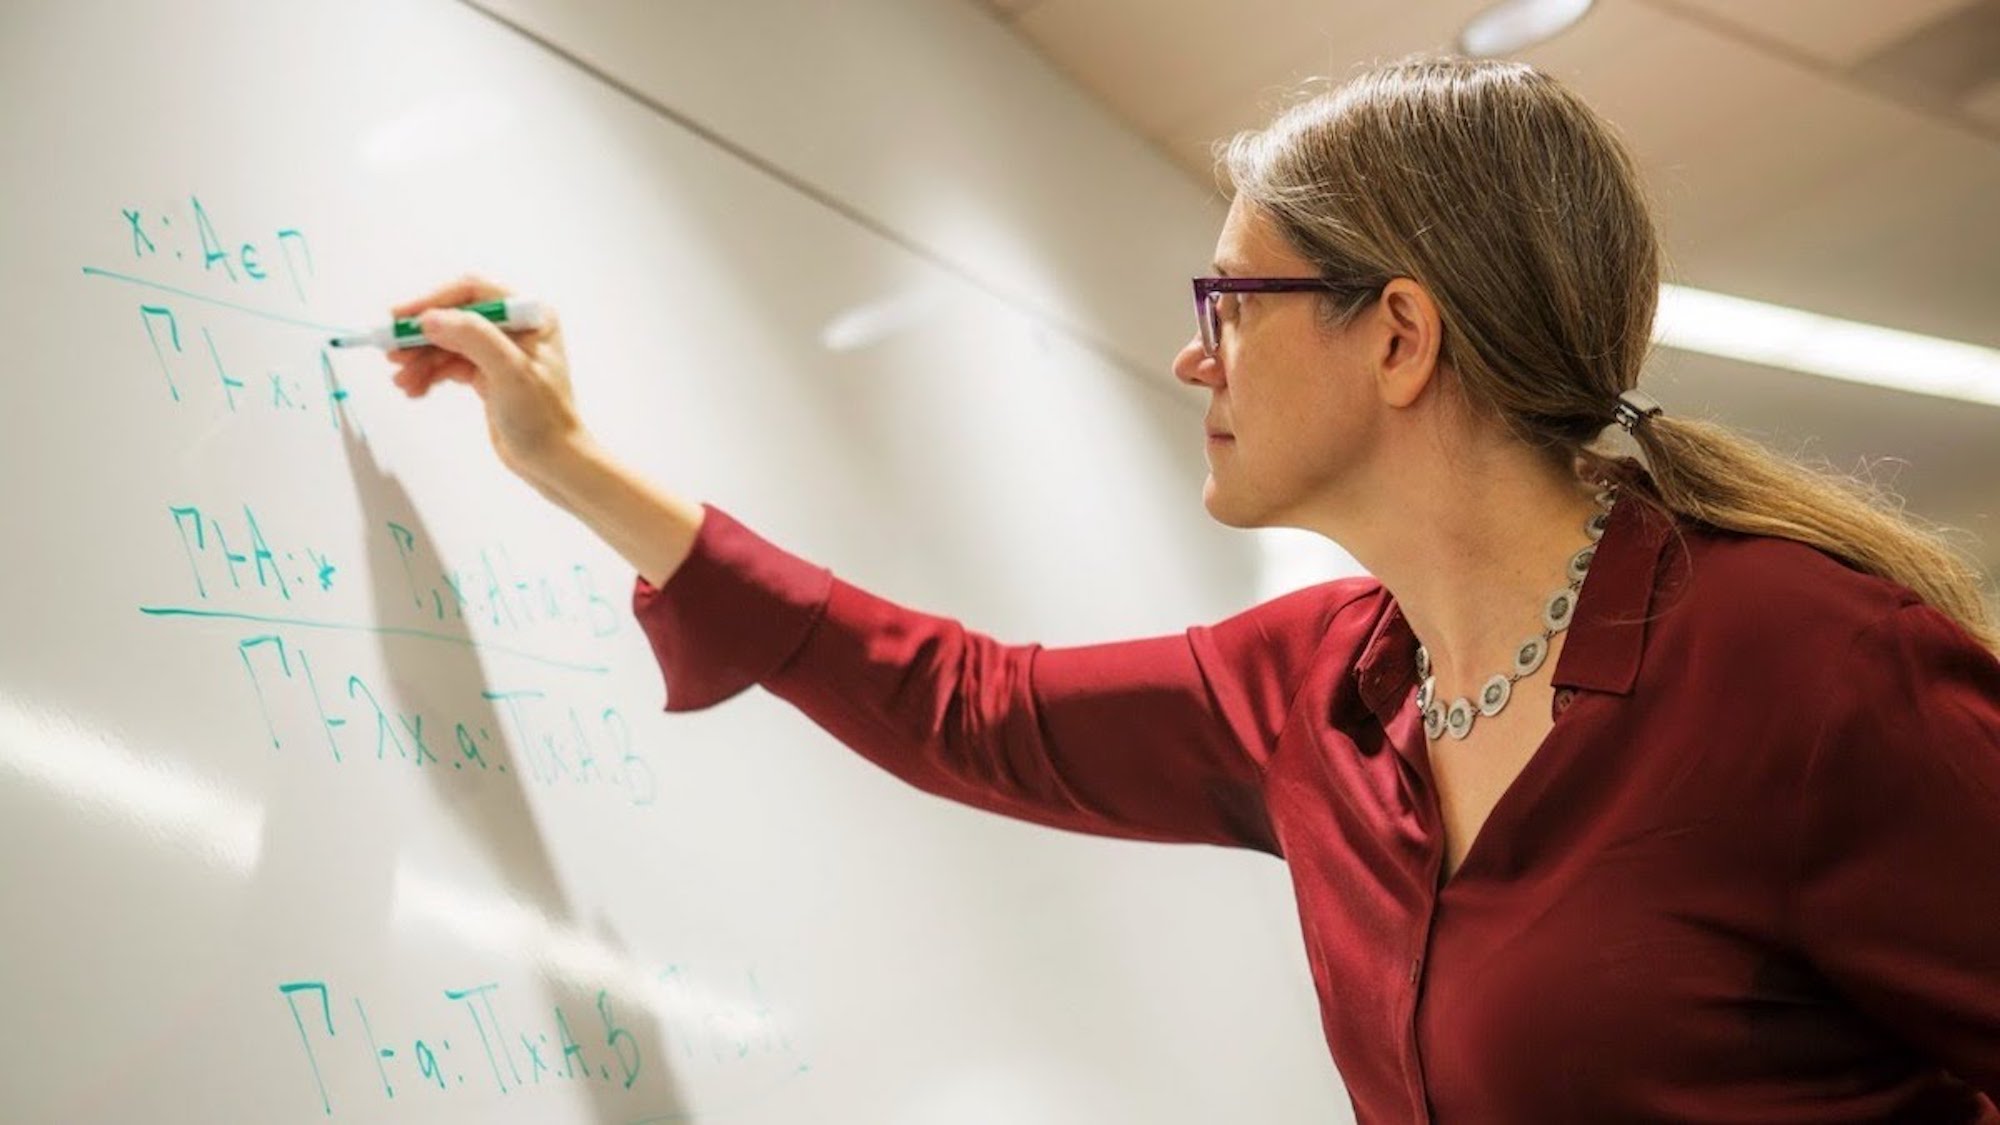 x : A ∈ Γ
Γ ⊢ x : A
Γ ⊢ A : * Γ, x : A ⊢ a : B
Γ ⊢ λx.a : Πx:A.B
Γ ⊢ a : Πx:A.B